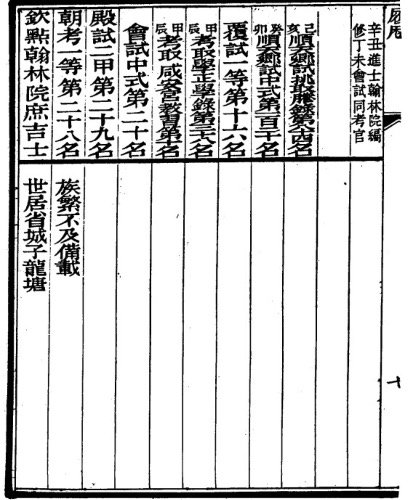 履歷
辛丑進士翰林院編
修丁未會試同考官
己亥順天鄉試挑取謄錄第八十四名
癸卯順天鄉試中式第一百二十名
覆試一等第十六名
甲辰考取學正學錄第三十八名
甲辰考取咸安宮教習第十名
會試中式第二十名
殿試二甲第二十九名
族繁不及備載
朝考一等第二十八名
世居省城子龍塘
欽點翰林院庶吉士
十